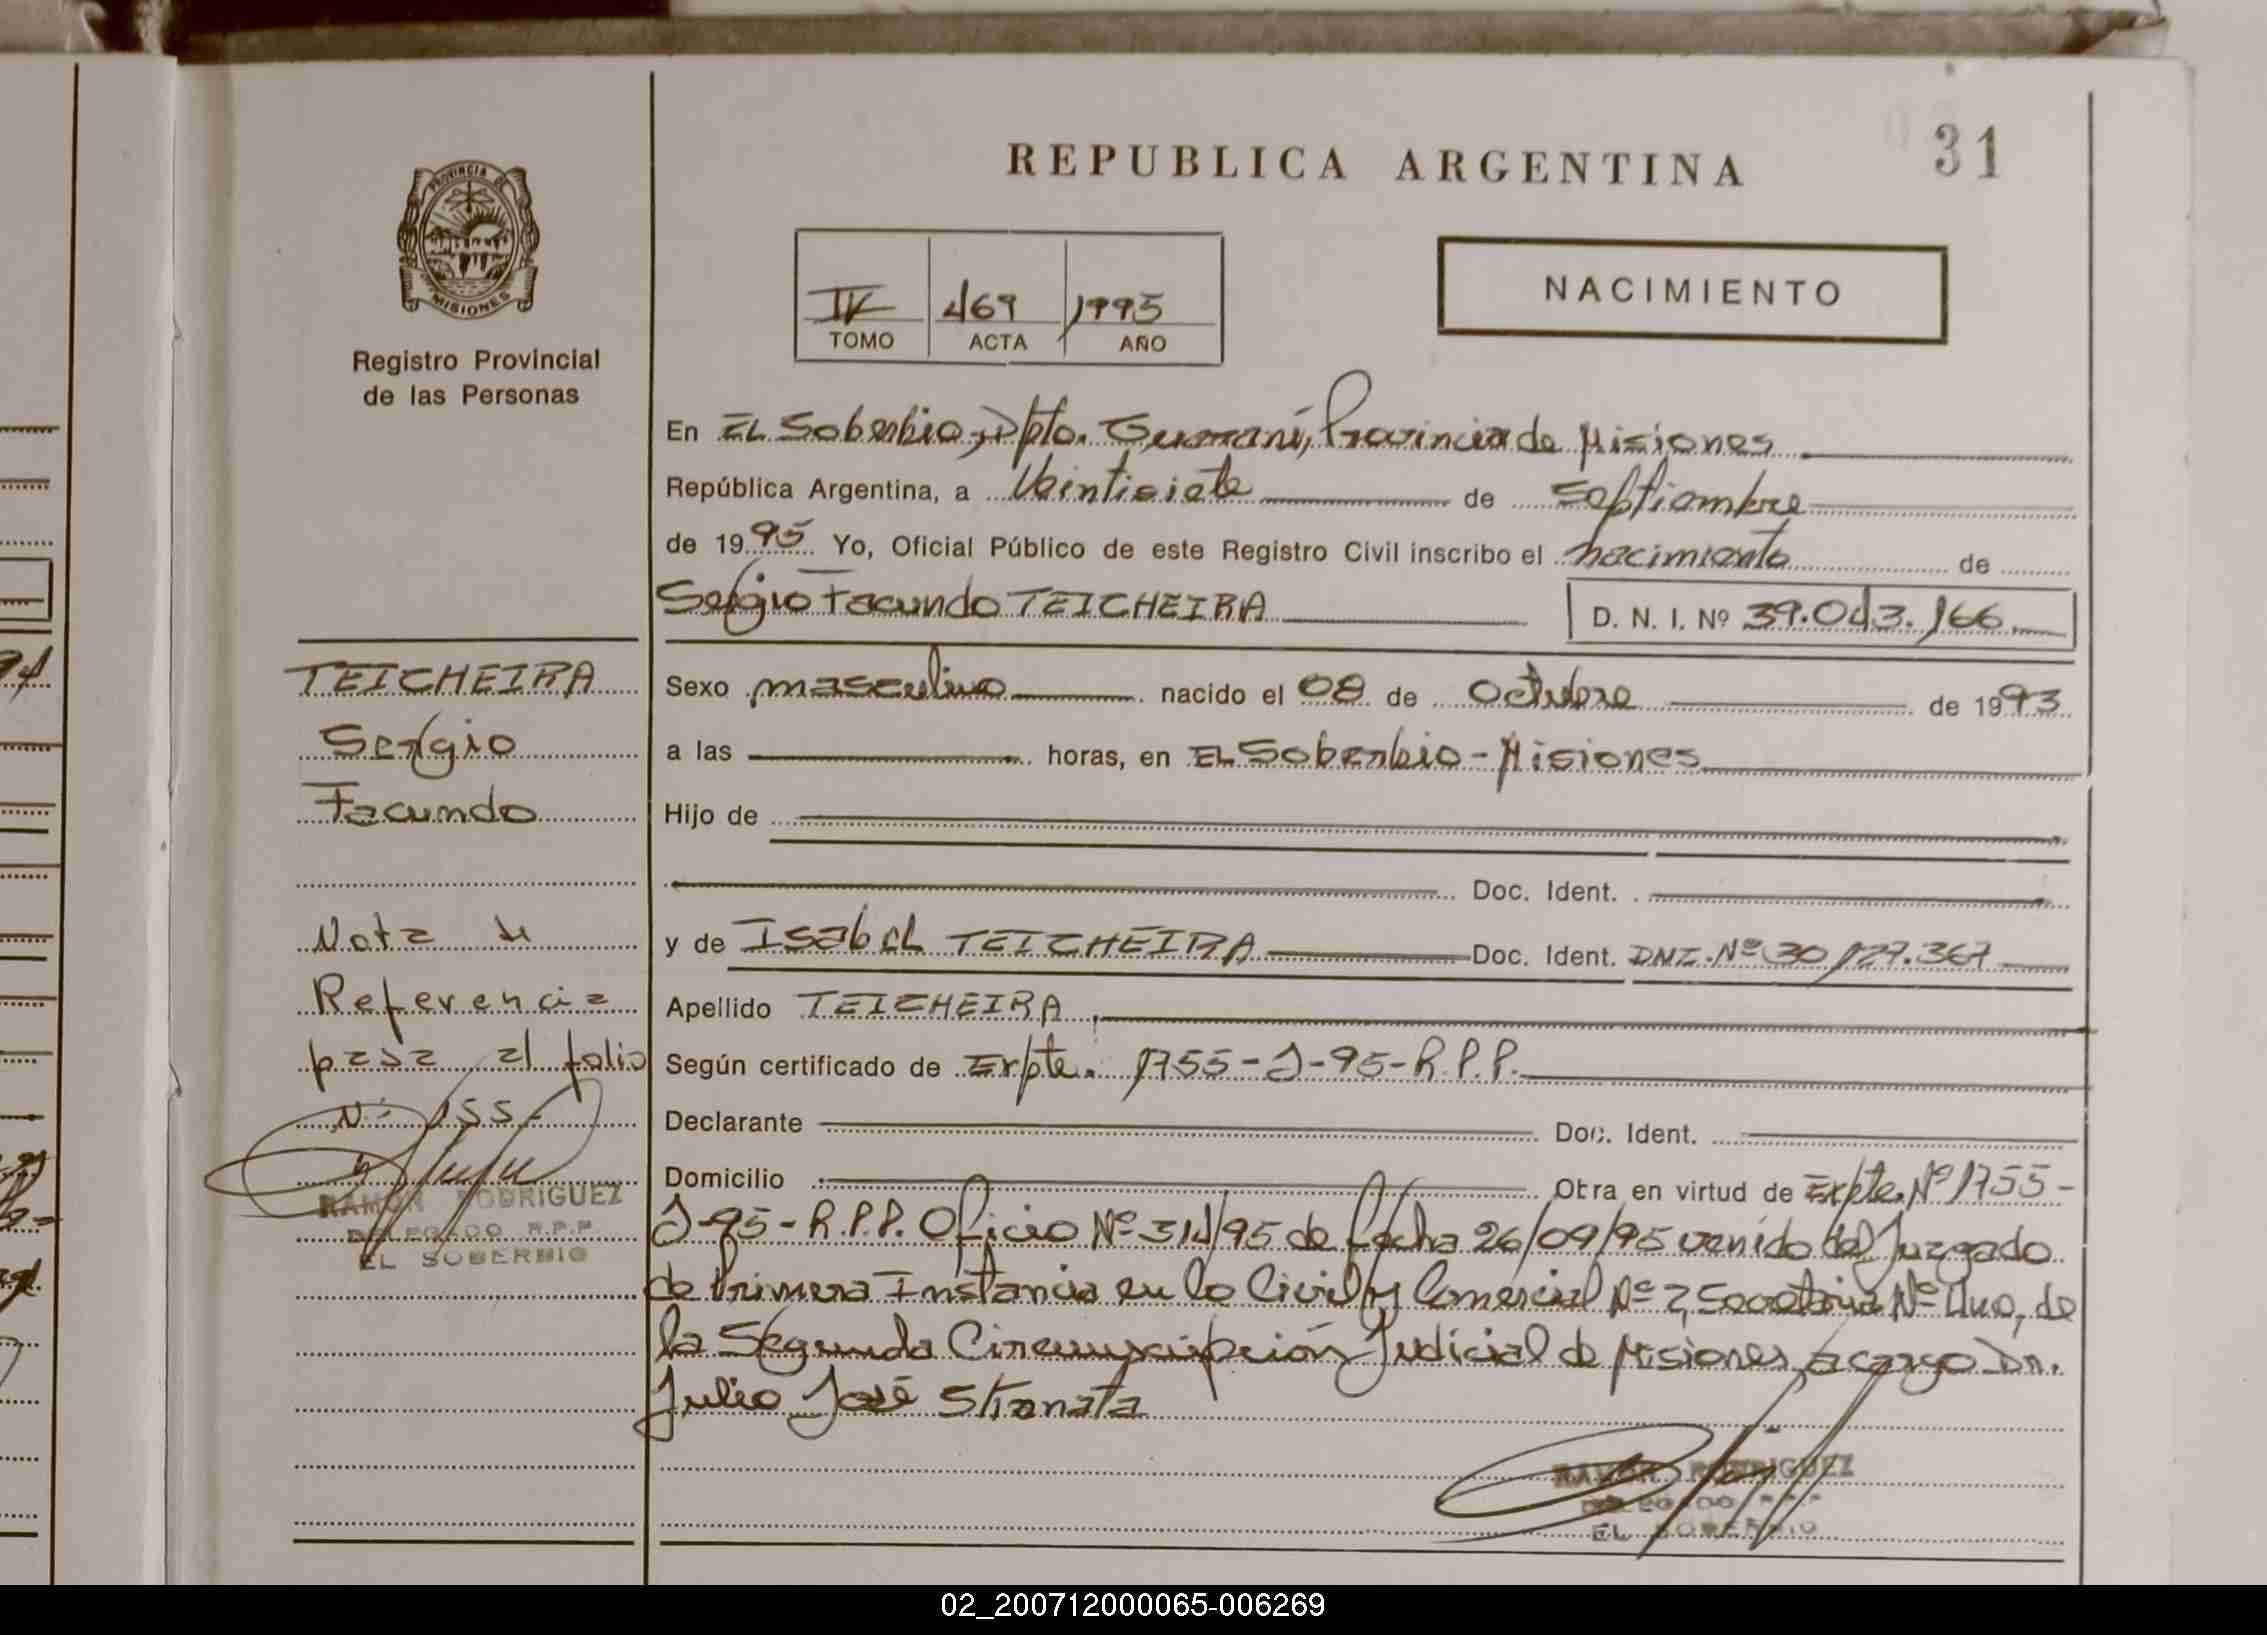 REPUBLICA ARGENTINA
31
PROVINCIA DE
MISIONES
Registro Provincial
de las Personas
IV 469 1995
TOMO ACTA AÑO
NACIMIENTO
En EL Soberbio, Dpto. Guaraní, Provincia de Misiones
República Argentina, a Veintisiete de Septiembre
de 1995 Yo, Oficial Público de este Registro Civil inscribo el nacimiento de
Sergio Facundo TEICHEIRA D. N. I. Nº 39.043.166
TEICHEIRA
Sergio
Facundo
Nota de
Referencia
pasa al folio
Nº 155-
RAMON RODRIGUEZ
DELEGADO R.P.P.
EL SOBERBIO
Sexo masculino nacido el 08 de Octubre de 1993
a las horas, en EL Soberbio - Misiones
Hijo de
Doc. Ident.
y de Isabel TEICHEIRA Doc. Ident. DNI. Nº 30.127.367
Apellido TEICHEIRA
Según certificado de Expte. 1755-J-95-R.P.P.
Declarante Doc. Ident.
Domicilio Otra en virtud de Expte. Nº 1755-
J-95-R.P.P. Oficio Nº 314/95 de fecha 26/09/95 venido del Juzgado
de Primera Instancia en lo Civil y Comercial Nº 2, Secretaria Nº Uno, de
la Segunda Circunscripción Judicial de Misiones, a cargo Dn.
Julio José
RAMON RODRIGUEZ
DELEGADO R.P.P
EL SOBERBIO
02_200712000065-006269